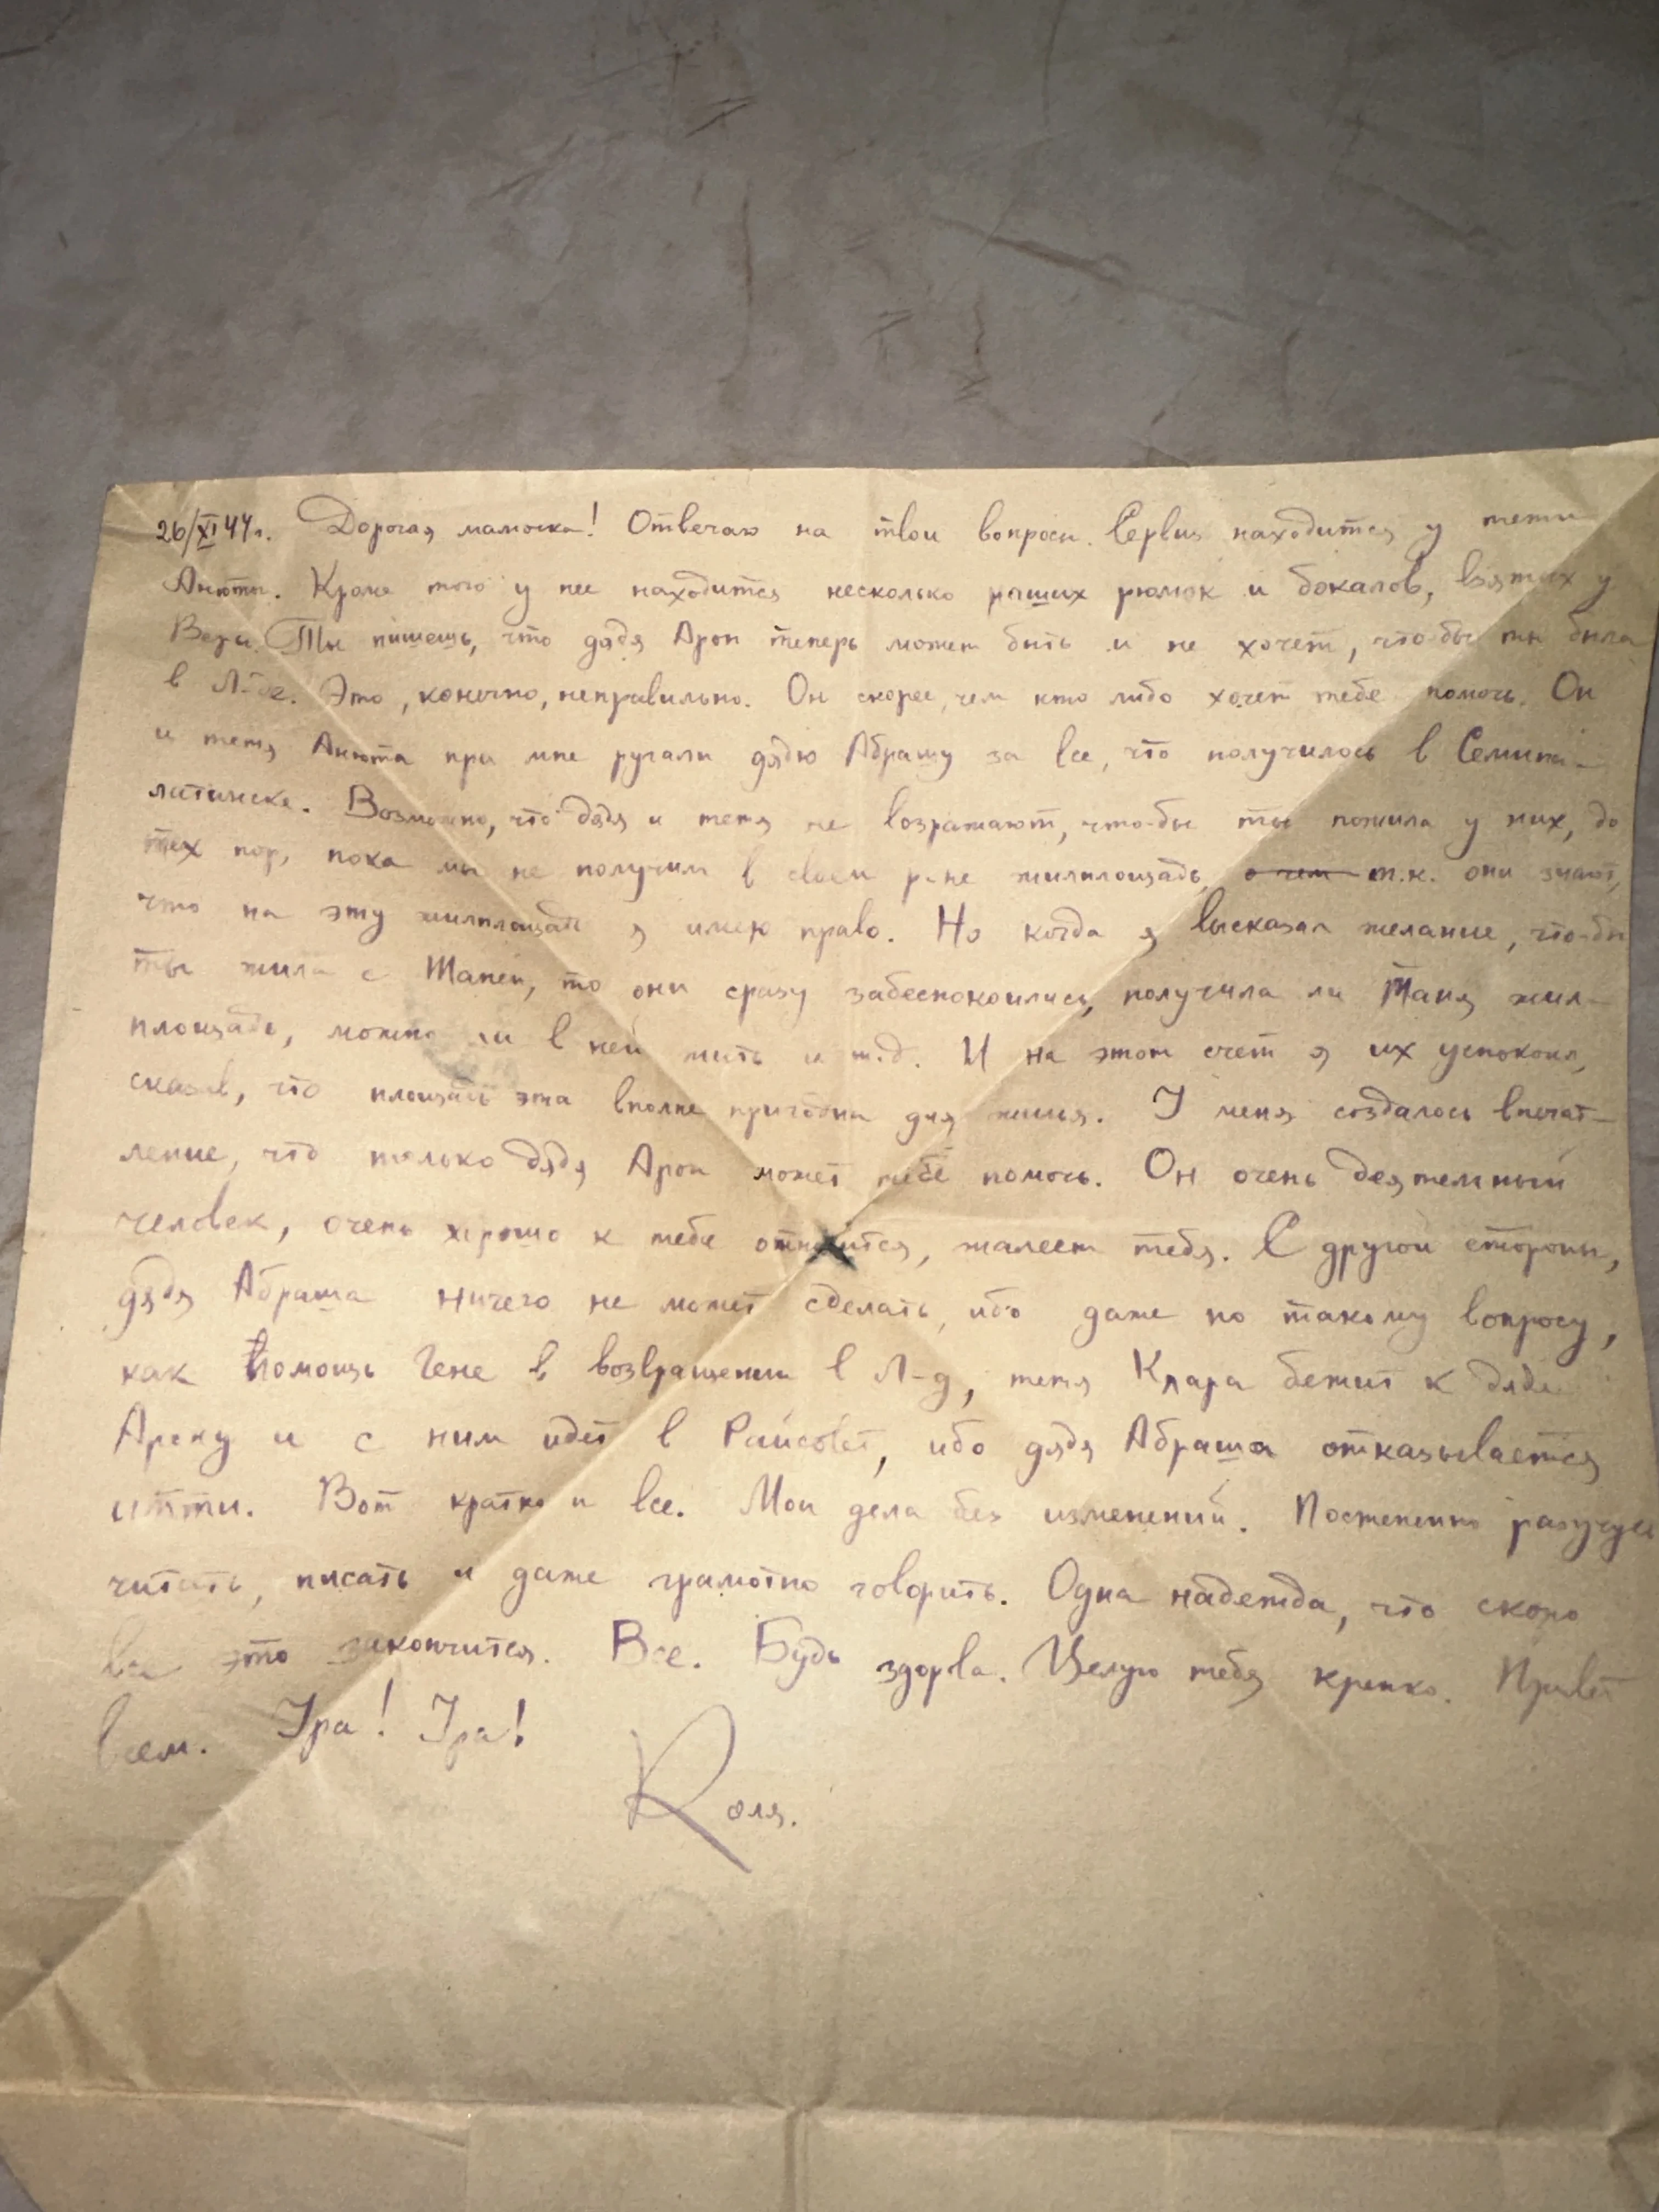 26/XI 44г. Дорогая мамочка! Отвечаю на твои вопросы. Сервиз находится у тети
Анюты. Кроме того у нее находится несколько наших рюмок и бокалов, взятых у
Веры. Ты пишешь, что дядя Арон теперь может быть и не хочет, что-бы ты была
в Л-де. Это, конечно, неправильно. Он скорее, чем кто либо хочет тебе помочь. Он
и тетя Анюта при мне ругали дядю Абрашу за все, что получилось в Семипа-
латинске. Возможно, что дядя и тетя не возражают, что-бы ты пожила у них, до
тех пор, пока мы не получим в своем р-не жилплощадь, о чем т.к. они знают,
что на эту жилплощадь я имею право. Но когда я высказал желание, что-бы
ты жила с Таней, то они сразу забеспокоились, получила ли Таня жил-
площадь, можно ли в ней жить и т.д. И на этот счет я их успокоил,
сказав, что площадь эта вполне пригодна для жилья. У меня создалось впечат-
ление, что только дядя Арон может тебе помочь. Он очень деятельный
человек, очень хорошо к тебе относится, жалеет тебя. С другой стороны,
дядя Абраша ничего не может сделать, ибо даже по такому вопросу,
как помощь Гене в возвращении в Л-д, тетя Клара бежит к дяде
Арону и с ним идет в Райсовет, ибо дядя Абраша отказывается
итти. Вот кратко и все. Мои дела без изменений. Постепенно разучусь
читать, писать и даже грамотно говорить. Одна надежда, что скоро
все это закончится. Все. Будь здорва. Целую тебя крепко. Привет
всем. Ура! Ура!
Коля.